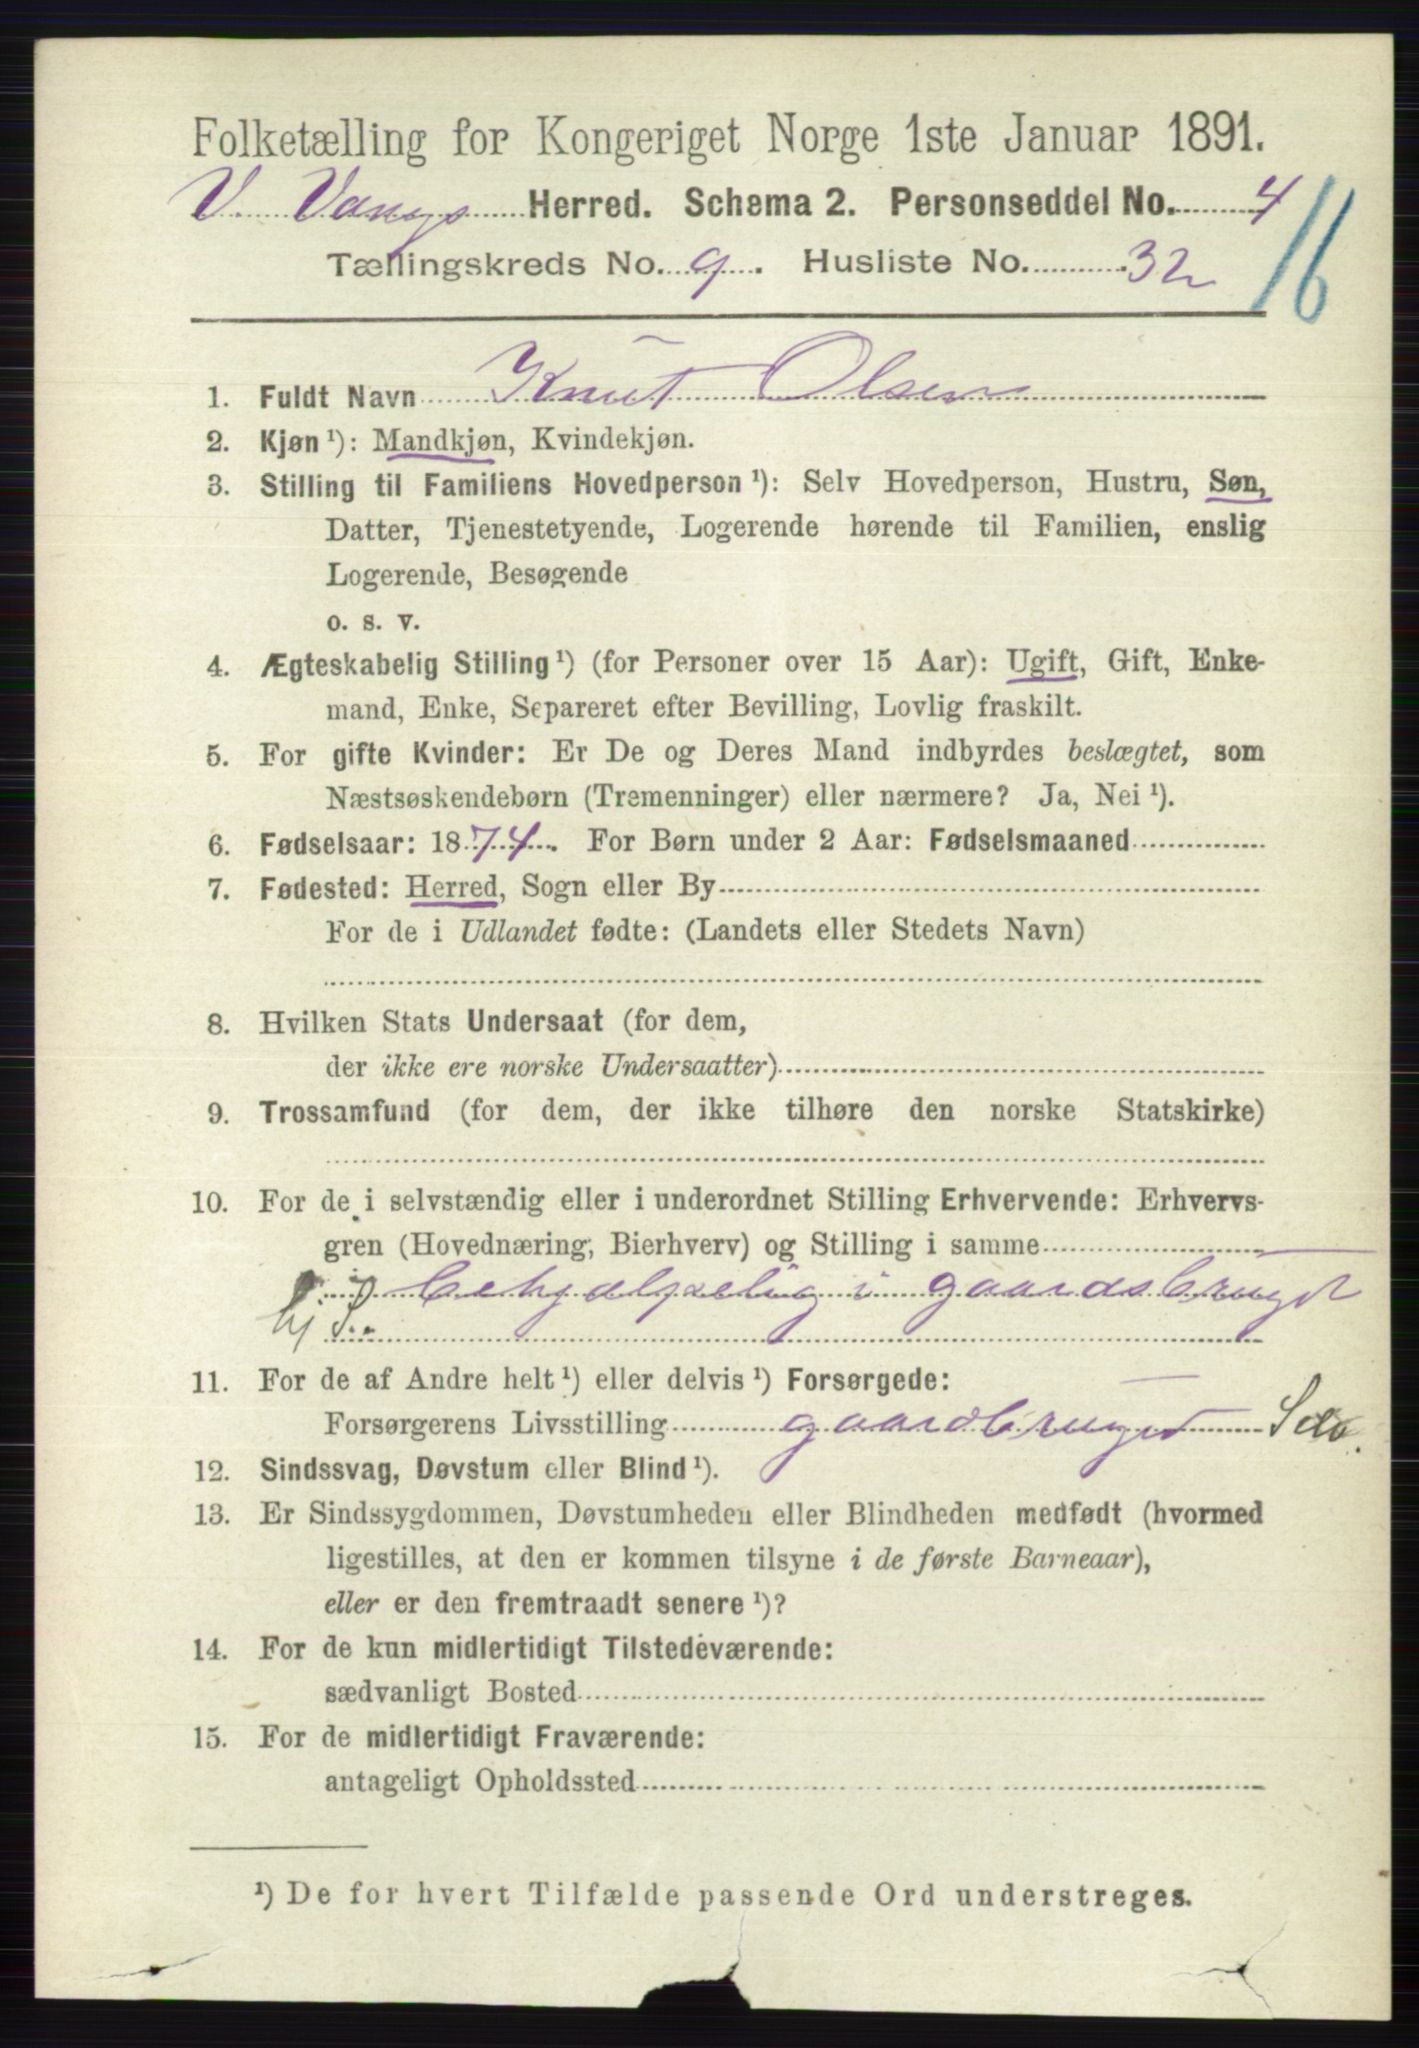 Folketælling for Kongeriget Norge 1ste Januar 1891.
V. Vangs Herred. Schema 2. Personseddel No. 4
Tællingskreds No. 9. Husliste No. 32
16
1. Fuldt Navn Knut Olsen
2. Kjøn ¹): Mandkjøn, Kvindekjøn.
3. Stilling til Familiens Hovedperson ¹): Selv Hovedperson, Hustru, Søn,
Datter, Tjenestetyende, Logerende hørende til Familien, enslig
Logerende, Besøgende
o. s. v.
4. Ægteskabelig Stilling ¹) (for Personer over 15 Aar): Ugift, Gift, Enke-
mand, Enke, Separeret efter Bevilling, Lovlig fraskilt.
5. For gifte Kvinder: Er De og Deres Mand indbyrdes beslægtet, som
Næstsøskendebørn (Tremenninger) eller nærmere? Ja, Nei ¹).
6. Fødselsaar: 1874. For Børn under 2 Aar: Fødselsmaaned
7. Fødested: Herred, Sogn eller By
For de i Udlandet fødte: (Landets eller Stedets Navn)
8. Hvilken Stats Undersaat (for dem,
der ikke ere norske Undersaatter)
9. Trossamfund (for dem, der ikke tilhøre den norske Statskirke)
10. For de i selvstændig eller i underordnet Stilling Erhvervende: Erhvervs-
gren (Hovednæring, Bierhverv) og Stilling i samme
behjælpelig i gaardsbruget
11. For de af Andre helt ¹) eller delvis ¹) Forsørgede:
Forsørgerens Livsstilling gaardbruget
12. Sindssvag, Døvstum eller Blind ¹).
13. Er Sindssygdommen, Døvstumheden eller Blindheden medfødt (hvormed
ligestilles, at den er kommen tilsyne i de første Barneaar),
eller er den fremtraadt senere ¹)?
14. For de kun midlertidigt Tilstedeværende:
sædvanligt Bosted
15. For de midlertidigt Fraværende:
antageligt Opholdssted
¹) De for hvert Tilfælde passende Ord understreges.